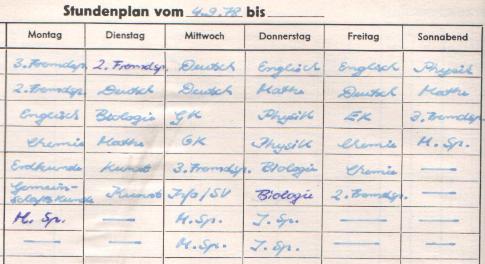 Stundenplan vom 4.9.78 bis
Montag Dienstag Mittwoch Donnerstag Freitag Sonnabend
3. Fremdsp. 2. Fremdsp. Deutsch Englisch Englisch Physik
2. Fremdsp. Deutsch Deutsch Mathe Deutsch Mathe
Englisch Biologie GK Physik EK 3. Fremdsp.
Chemie Mathe GK Physik Chemie M. Sp.
Erdkunde Kunst 3. Fremdsp. Biologie Chemie —
Gemeins- Kunst Info/SV Biologie 2. Fremdsp. —
schaftskunde
M. Sp. — M. Sp. J. Sp. — —
— — M. Sp. J. Sp. — —